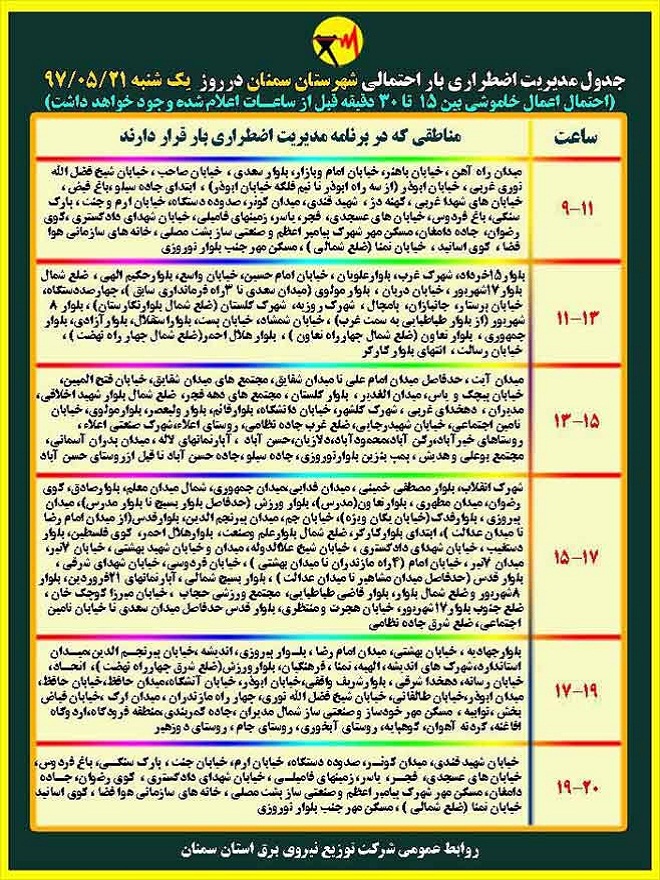 جدول مدیریت اضطراری بار احتمالی شهرستان سمنان در روز یک شنبه ۹۷/۰۵/۲۱
(احتمال اعمال خاموشی بین ۱۵ تا ۳۰ دقیقه قبل از ساعات اعلام شده وجود خواهد داشت)
ساعت
مناطقی که در برنامه مدیریت اضطراری بار قرار دارند
۹-۱۱
میدان راه آهن ، خیابان باهنر، خیابان امام وبازار، بلوار سعدی ، خیابان صاحب ، خیابان شیخ فضل الله
نوری غربی ، خیابان ابوذر (از سه راه ابوذر تا نیم فلکه خیابان ابوذر) ، ابتدای جاده سیلو، باغ فیض ،
خیابان های شهدا غربی ، کهنه دژ ، شهید قندی، میدان کوثر، صدوده دستگاه، خیابان ارم و جنت ، پارک
سنگی، باغ فردوس، خیابان های عسجدی، فجر، یاسر، زمینهای فامیلی ، خیابان شهدای دادگستری ،کوی
رضوان، جاده دامغان، مسکن مهر شهرک پیامبر اعظم و صنعتی ساز پشت مصلی ، خانه های سازمانی هوا
فضا ، کوی اساتید ، خیابان تمنا (ضلع شمالی ) ، مسکن مهر جنب بلوار نوروزی
۱۱-۱۳
بلوار ۱۵خرداد، شهرک غرب، بلوارعلویان ، خیابان امام حسین، خیابان واسع، بلوارحکیم الهی ، ضلع شمال
بلوار ۱۷شهریور، خیابان دربان ، بلوار مولوی (میدان سعدی تا ۳راه فرمانداری سابق )، چهارصددستگاه،
خیابان پرستار، جانبازان، بامچال ، شهرک روزیه، شهرک گلستان (ضلع شمال بلوارنگارستان )، بلوار ۸
شهریور (از بلوار طباطبایی به سمت غرب) ، خیابان شمشاد، خیابان بست، بلواراستقلال، بلوار آزادی، بلوار
جمهوری ، بلوار تعاون (ضلع شمال چهارراه تعاون ) ، بلوار هلال احمر(ضلع شمال چهار راه نهضت ) ،
خیابان رسالت ، انتهای بلوار کارگر
۱۳-۱۵
میدان آیت ، حدفاصل میدان امام علی تا میدان شقایق، مجتمع های میدان شقایق، خیابان فتح المبین،
خیابان پیچک و یاس، میدان الغدیر ، بلوار گلستان ، مجتمع های دهه فجر، ضلع شمال بلوار شهید اخلاقی،
مدیران ، دهخدای غربی ، شهرک گلشهر، خیابان دانشگاه، بلوارقائم، بلوار ولیعصر، بلوارمولوی، خیابان
تامین اجتماعی، خیابان شهیدرجایی، ضلع غرب جاده نظامی، روستای اعلاء، شهرک صنعتی اعلاء ،
روستاهای خیرآباد، رکن آباد،محمودآباد،دلازیان،حسن آباد ، آپارتمانهای لاله، میدان پدران آسمانی،
مجتمع بوعلی وهدیش ، پمپ بنزین بلوارنوروزی ، جاده سیلو ،جاده حسن آباد تا قبل ازروستای حسن آباد
۱۵-۱۷
شهرک انقلاب، بلوار مصطفی خمینی ، میدان فدایی،میدان جمهوری، شمال میدان معلم، بلوارصادق، کوی
رضوان، میدان مطهری ، بلوارتعاون(مدرس)، بلوار ورزش (حدفاصل بلوار بسیج تا بلوار مدرس)، میدان
پیروزی ، بلوارفدک(خیابان یگان ویژه)، خیابان جم، میدان پیرنجم الدین، بلوارقدس(از میدان امام رضا
تا میدان عدالت )، ابتدای بلوارکارگر، ضلع شمال بلوارعلم وصنعت، بلوارهلال احمر، کوی فلسطین، بلوار
دستغیب ، خیابان شهدای دادگستری ، خیابان شیخ علاالدوله، میدان و خیابان شهید بهشتی ، خیابان ۷تیر،
میدان ۷تیر، خیابان امام (۴راه مازندران تا میدان بهشتی ) ، خیابان فردوسی، خیابان شهدای شرقی ،
بلوار قدس (حدفاصل میدان مشاهیر تا میدان عدالت ) ، بلوار بسیج شمالی ، آپارتمانهای ۲۱فروردین، بلوار
۸شهریور و ضلع شمال بلوار، بلوار قاضی طباطبایی، مجتمع ورزشی حجاب ، خیابان میرزا کوچک خان ،
ضلع جنوب بلوار۱۷شهریور، خیابان هجرت و منتظری، بلوار قدس حدفاصل میدان سعدی تا خیابان تامین
اجتماعی، ضلع شرق جاده نظامی
۱۷-۱۹
بلوارجهادیه ، خیابان بهشتی، میدان امام رضا ، بلوار پیروزی، اندیشه ،خیابان پیرنجم الدین،میدان
استاندارد،شهرک های اندیشه، الهیه، تمنا ، فرهنگیان، بلوارورزش(ضلع شرق چهارراه نهضت )، اتحاد،
خیابان رسانه ، دهخدا شرقی ، بلوارشریف واقفی، خیابان ابوذر، خیابان آتشگاه، میدان حافظ، خیابان حافظ،
میدان ابوذر،خیابان طالقانی، خیابان شیخ فضل الله نوری، چهار راه مازندران ، میدان ارک ،خیابان فیاض
بخش ،توابیه ، مسکن مهر خودساز وصنعتی ساز شمال مدیران ،جاده کمربندی،منطقه فرودگاه،اردوگاه
افاغنه، گردنه آهوان، کوهپایه، روستای آبخوری، روستای جام ، روستای دوزهیر
۱۹-۲۰
خیابان شهید قندی، میدان کوثر، صدوده دستگاه، خیابان ارم، خیابان جنت ، پارک سنگی، باغ فردوس،
خیابان های عسجدی، فجر، یاسر، زمینهای فامیلی ، خیابان شهدای دادگستری ، کوی رضوان، جاده
دامغان، مسکن مهر شهرک پیامبر اعظم و صنعتی ساز پشت مصلی ، خانه های سازمانی هوا فضا ، کوی اساتید
خیابان تمنا (ضلع شمالی ) ، مسکن مهر جنب بلوار نوروزی
روابط عمومی شرکت توزیع نیروی برق استان سمنان